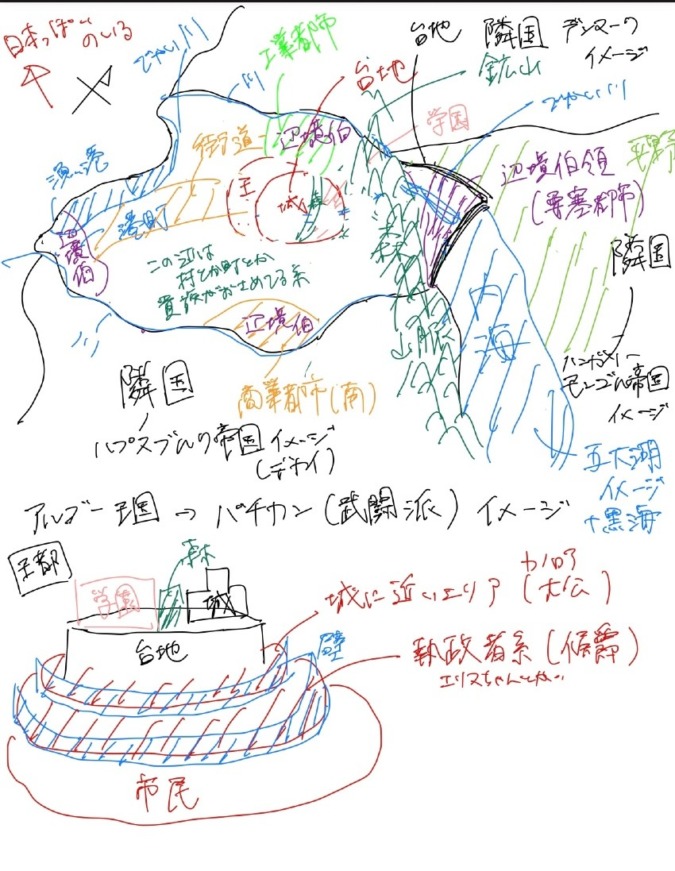 日本っぽいのいる
でかい川
川
工業都市
台地
台地
隣国 デンマーク
イメージ
鉱山
でかい川
学園
街道
辺境伯
漁港
港町
王
城
森
辺境伯
辺境伯領
(要塞都市)
隣国
ハンガリー
モンゴル帝国
イメージ
この辺は
村とか町とか
貴族がおさめてる系
森
山脈
内海
川
辺境伯
商業都市(南)
隣国
ハプスブルク帝国イメージ
(デカイ)
五大湖
イメージ
+黒海
アルゴー王国→バチカン(武闘派)イメージ
王都
森
学園
城
台地
壁
城に近いエリア(大公)
執政者系(侯爵)
エリスちゃんとか
市民